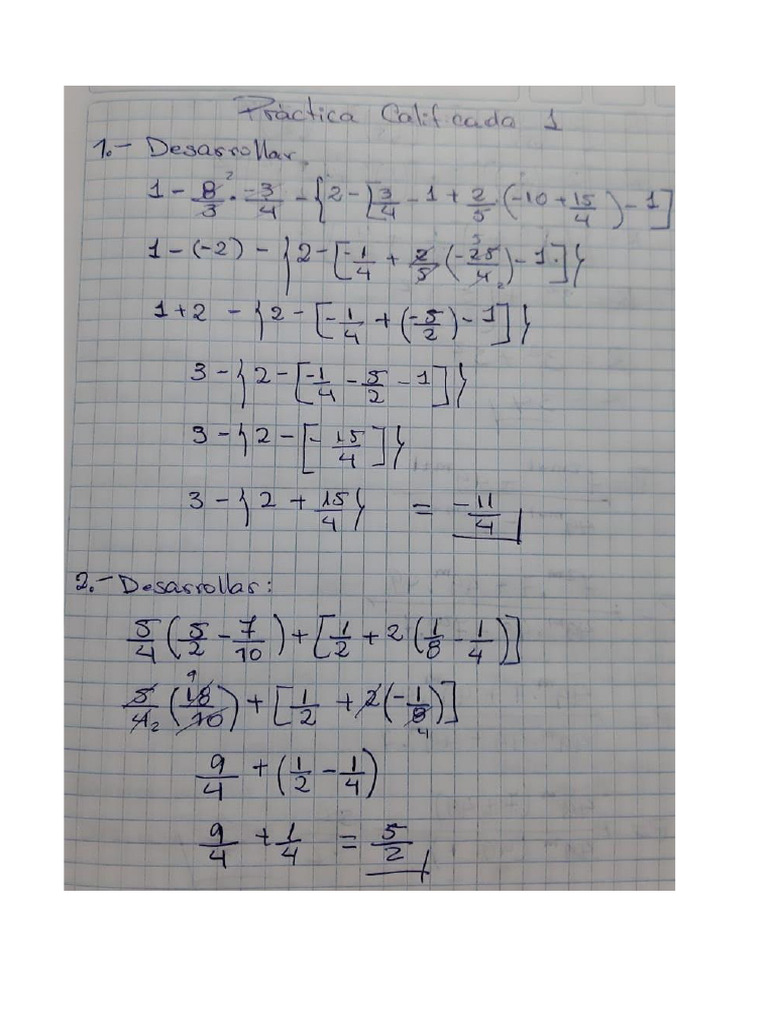 Práctica Calificada 1
1.- Desarrollar.
1 - 8/3 · -3/4 - {2 - [3/4 - 1 + 2/5 · (-10 + 15/4) - 1]
1 - (-2) - {2 - [-1/4 + 2/5 (-25/4) - 1·]}
1 + 2 - {2 - [-1/4 + (-5/2) - 1]}
3 - {2 - [-1/4 - 5/2 - 1]}
3 - {2 - [- 15/4]}
3 - {2 + 15/4} = -11/4
2.- Desarrollar:
5/4 (5/2 - 7/10) + [1/2 + 2 (1/8 - 1/4)]
5/4 (18/10) + [1/2 + 2 (-1/8)]
9/4 + (1/2 - 1/4)
9/4 + 1/4 = 5/2